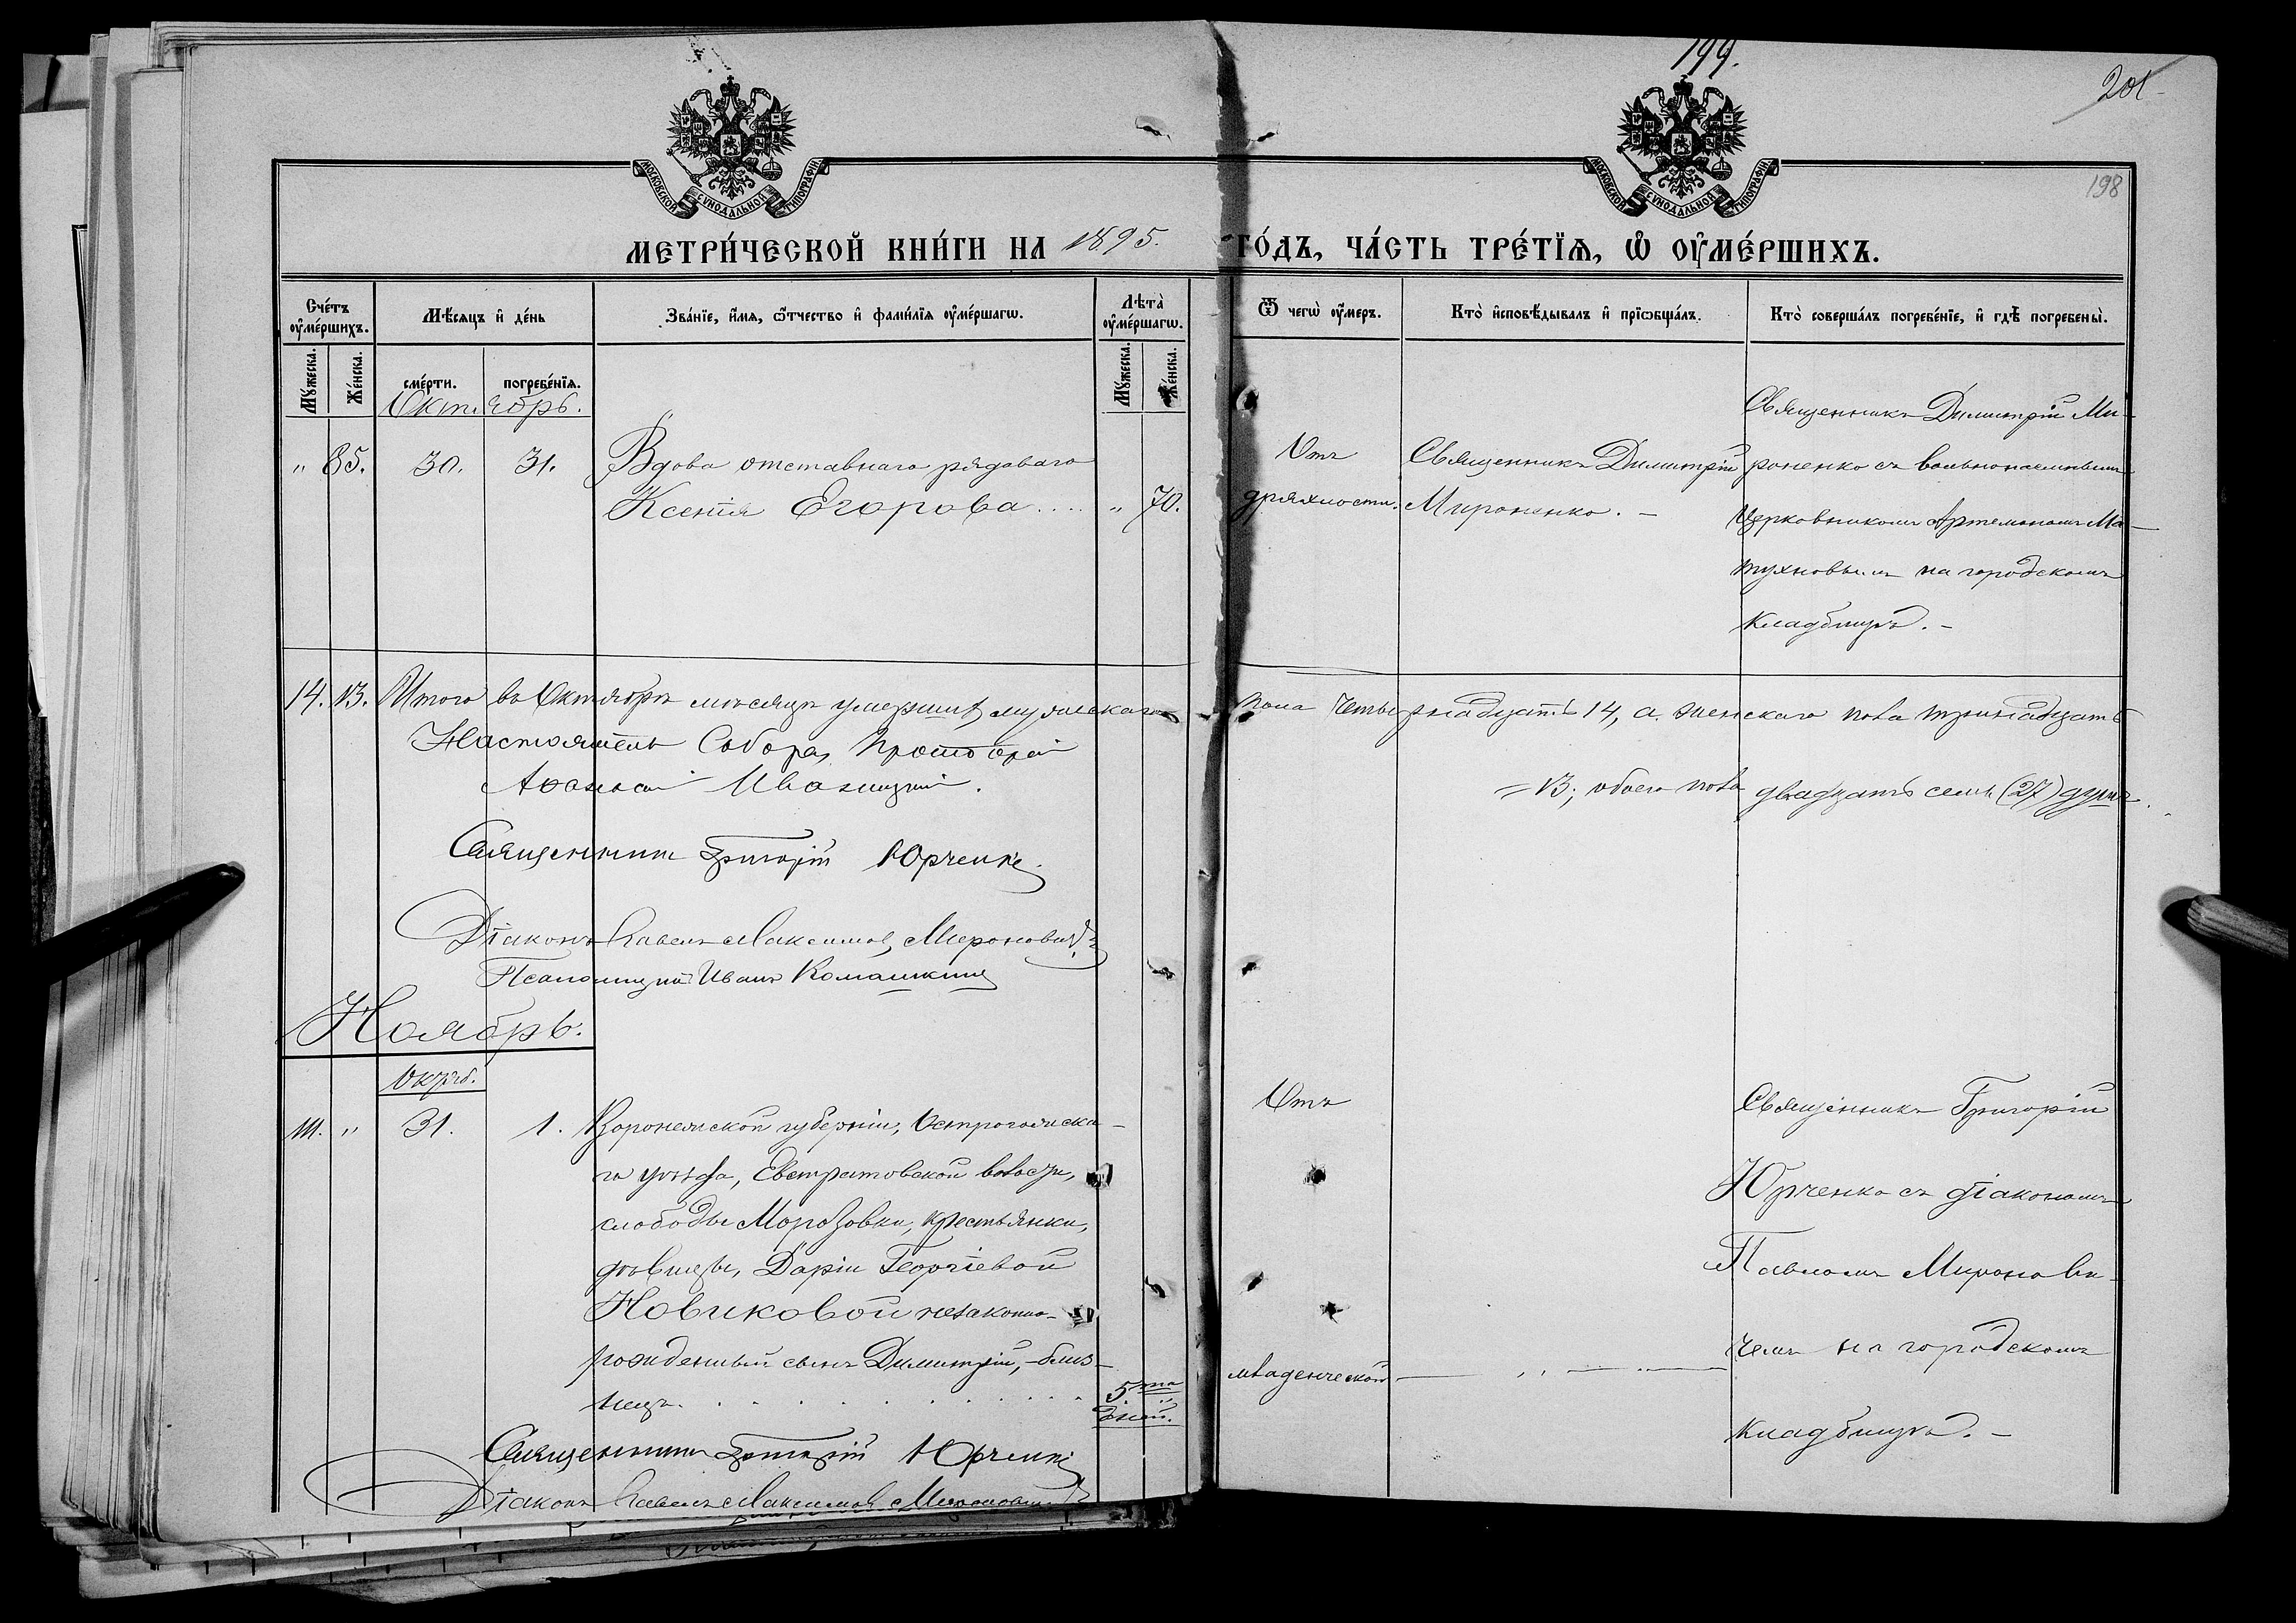 199.
201
198
МОСКОВСКОЙ СѴНОДАЛЬНОЙ ТИПОГРАФІИ
МОСКОВСКОЙ СѴНОДАЛЬНОЙ ТИПОГРАФІИ
МЕТРИ́ЧЕСКОЙ КНИ́ГИ НА 1895. ГО́ДЪ, ЧА́СТЬ ТРЕ́ТЇѦ, Ѡ҆ ОУ҆МЕ́РШИХЪ.
Сче́тъ оу҆ме́ршихъ.
Мѣ́сѧцъ и҆ де́нь
Зва́нїе, и҆́мѧ, ѻ҆́тчество и҆ фами́лїѧ оу҆ме́ршагѡ.
Лѣта̀ оу҆ме́ршагѡ.
Ѿ чегѡ̀ оу҆́меръ.
Кто̀ и҆сповѣ́дывалъ и҆ прїѡбща́лъ.
Кто̀ соверша́лъ погребе́нїе, и҆ гдѣ̀ погребены̀.
Мꙋ́жеска. Же́нска. сме́рти. погребе́нїѧ. Мꙋ́жеска. Же́нска.
Октябрь.
" 85. 30. 31. Вдова отставнаго рядоваго
Ксенія Егорова.... " 70.
Отъ
дряхлости.
Священникъ Димитрій
Мироненко. —
Священникъ Димитрій Ми-
роненко съ вольнонаемнымъ
церковникомъ Артемономъ Ма-
тухновымъ на городскомъ
кладбищѣ. —
14. 13. Итого въ Октябрѣ мѣсяцѣ умершихъ мужескаго пола четырнадцать 14, а женскаго пола тринадцать
= 13; обоего пола двадцать семь (27) душъ.
Настоятель Собора, Протоіерей
Аѳанасій Иваницкій.
Священникъ Григорій Юрченко.
Діаконъ Павелъ Максимовъ Мироновичъ
Псаломщикъ Иванъ Комашкинъ
Ноябрь.
Октяб.
111. " 31. 1. Воронежской губерніи, Острогожска-
го уѣзда, Евстратовской волости,
слободы Морозовки, крестьянки,
дѣвицы, Даріи Георгіевой
Новиковой незаконно-
рожденный сынъ Димитрій, — близ-
нецъ. . . . . . . . . . 5ти дней. "
Отъ
младенческой — " —
Священникъ Григорій
Юрченко съ діакономъ
Павломъ Миронови-
чемъ на городскомъ
кладбищѣ. —
Священникъ Григорій Юрченко
Діаконъ Павелъ Максимовъ Мироновичъ